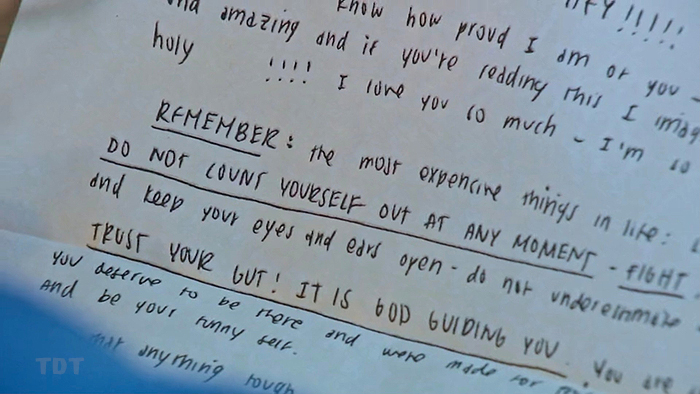 know how proud I am of you -
and amazing and if you're reading this I
holy !!!! I love you so much - I'm so
REMEMBER: the most expensive things in life:
DO NOT COUNT YOURSELF OUT AT ANY MOMENT - FIGHT
and keep your eyes and ears open - do not underestimate
TRUST YOUR GUT! IT IS GOD GUIDING YOU. You are
you deserve to be there and were made for
and be your funny self.
anything tough
TDT